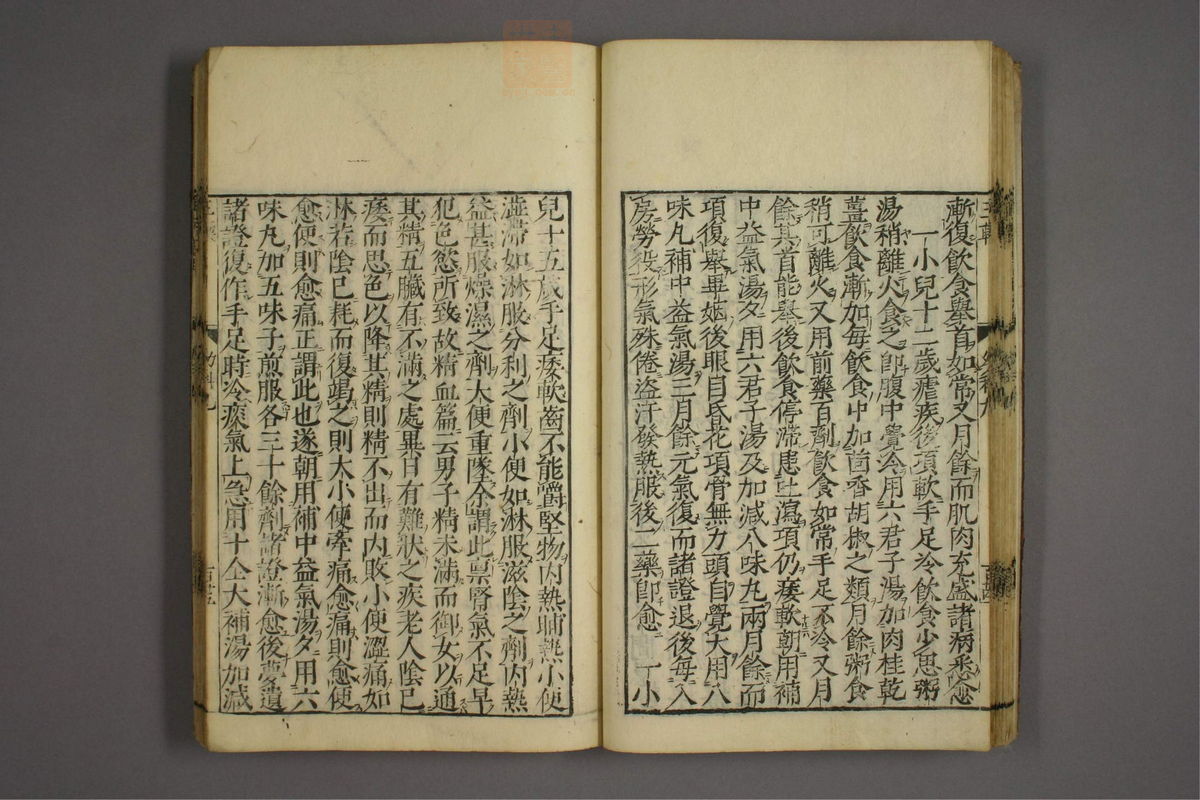 漸復飲食舉首如常又月餘而肌肉充盛諸病悉愈
一小兒十二歲瘧疾後項軟手足冷飲食少思粥
湯稍離火食之即腹中覺冷用六君子湯加肉桂乾
薑飲食漸加每飲食中加茴香胡椒之類月餘粥食
稍可離火又用前藥百劑飲食如常手足不冷又月
餘其首能舉後飲食停滯患吐瀉項仍痿軟朝用補
中益氣湯夕用六君子湯及加減八味丸兩月餘而
項復舉畢姻後眼目昏花項骨無力頭自覺大用八
味丸補中益氣湯三月餘元氣復而諸證退後每入
房勞役形氣殊倦盜汗發熱服後二藥即愈 一小
兒十五歲手足痿軟齒不能嚼堅物內熱晡熱小便
澁滯如淋服分利之劑小便如淋服滋陰之劑內熱
益甚服燥濕之劑大便重墜余謂此禀腎氣不足早
犯色慾所致故精血篇云男子精未滿而御女以通
其精五臟有不滿之處異日有難狀之疾老人陰已
痿而思色以降其精則精不出而內敗小便澀痛如
淋若陰已耗而復竭之則大小便牽痛愈痛則愈便
愈便則愈痛正謂此也遂朝用補中益氣湯夕用六
味丸加五味子煎服各三十餘劑諸證漸愈後夢遺
諸證復作手足時冷痰氣上急用十全大補湯加減